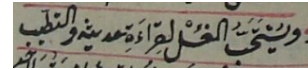 ويستحب الغسل لقراءة حديثه والتطيب